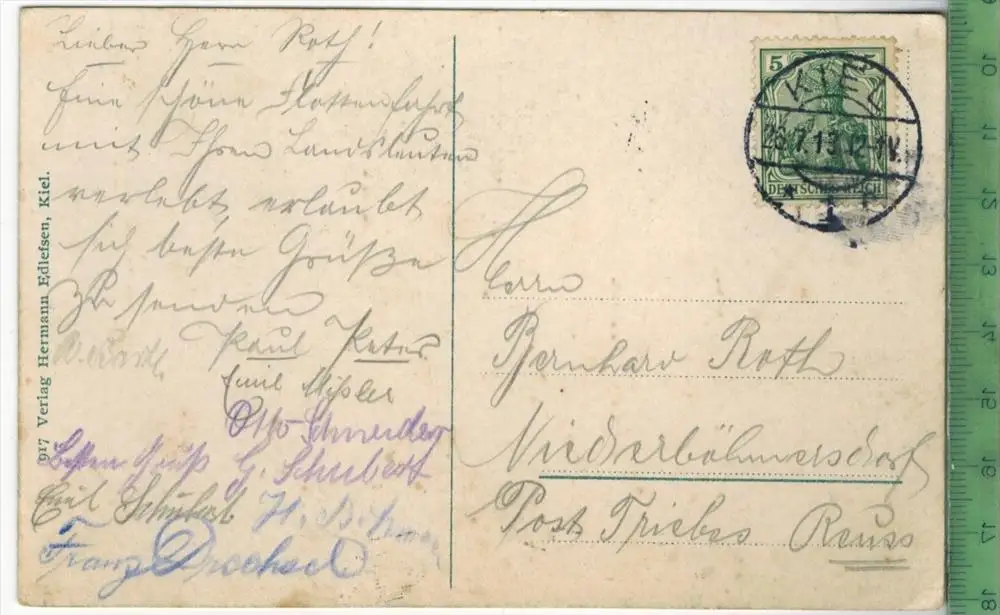 Lieber Herr Roth!
Eine schöne Flottenfahrt
mit Ihren Landsleuten
verlebt, erlaubt
sich beste Grüße
zu senden
Paul Peter
Emil Mißler
Otto Schneider
Besten Gruß G. Schubert
Emil Schubert H.
Franz Drechsel
917 Verlag Hermann Edlefsen, Kiel.
5 5
KIEL
28.7.13.12-1N.
DEUTSCHES REICH
Herrn
Bernhard Roth
Niederböhmersdorf
Post Triebes Reuss
9
10
11
12
13
14
15
16
17
18